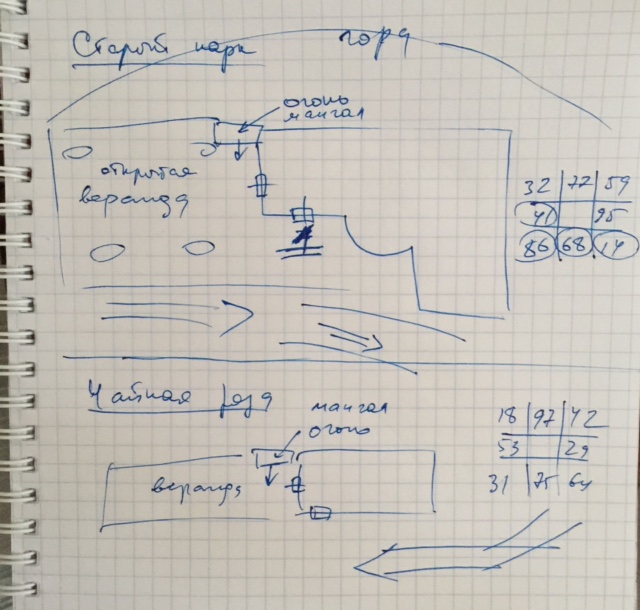 Старый парк
гора
огонь
мангал
открытая
веранда
32 77 59
41 95
86 68 14
Чайная роза
мангал
огонь
веранда
18 97 42
53 29
31 75 64